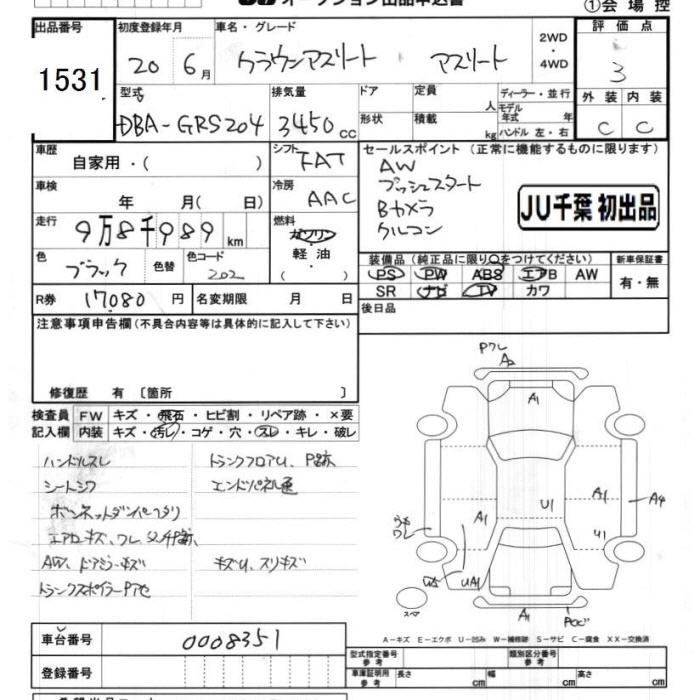 オークション出品申込書
①会場控
出品番号 1531
初度登録年月 20 6月
車名・グレード クラウンアスリート アスリート
2WD・4WD
評価点 3
外装 内装
C C
型式 DBA-GRS204
排気量 3450cc
ドア 形状
定員 人
積載 kg
ディーラー・並行
モデル年式 年
ハンドル 左・右
車歴 自家用・( )
シフト FAT
車検 年 月( 日)
冷房 AAC
走行 9万8千989km
燃料 ガソリン・軽油・( )
色 ブラック 色替
色コード 202
R券 17080円
名変期限 月 日
セールスポイント (正常に機能するものに限ります)
AW
プッシュスタート
Bカメラ
クルコン
JU千葉 初出品
装備品 (純正品に限り○をつけてください)
新車保証書
PS PW ABS エアB AW
SR ナビ TV カワ
有・無
後日品
注意事項申告欄 (不具合内容等は具体的に記入して下さい)
修復歴 有 〔箇所 〕
検査員記入欄
FW キズ・飛石・ヒビ割・リペア跡・×要
内装 キズ・汚レ・コゲ・穴・スレ・キレ・破レ
ハンドルスレ
シートシワ
ボンネットダンパーヘタリ
AW、ドアミラーキズ
トランクスポイラーPアセ
トランクフロアU、P跡
キズU、スリキズ
PワレA2
A1
A1
A4
U1
A1
U1
UA1
A1
スペア
A-キズ E-エクボ U-凹み W-補修跡 S-サビ C-腐食 XX-交換済
車台番号 0008351
登録番号
型式指定番号 参考
類別区分番号 参考
車庫証明用 参考 長さ cm 幅 cm 高さ cm